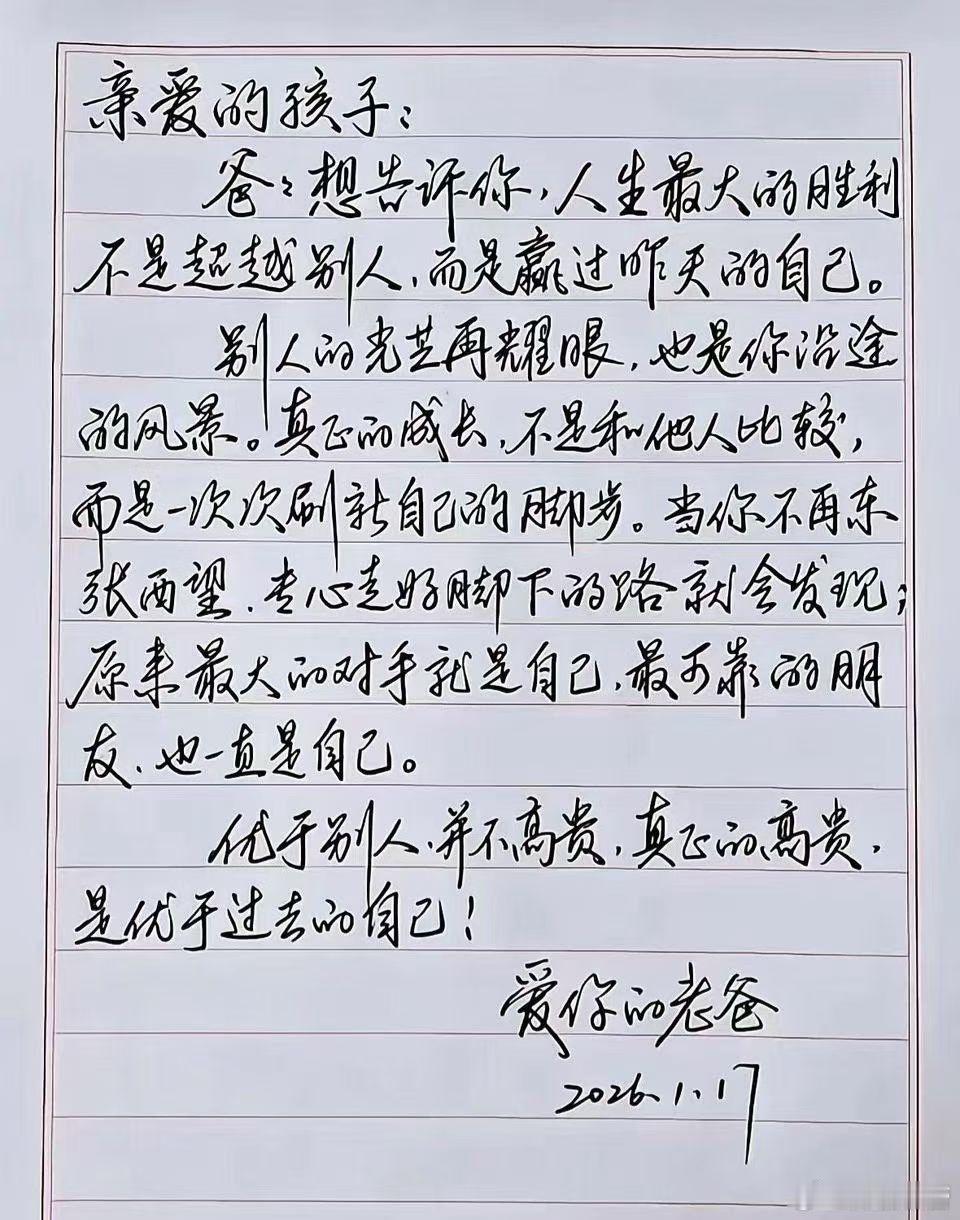 亲爱的孩子：
爸々想告诉你，人生最大的胜利
不是超越别人，而是赢过昨天的自己。
别人的光芒再耀眼，也是你沿途
的风景。真正的成长，不是和他人比较，
而是一次次刷新自己的脚步。当你不再东
张西望、专心走好脚下的路就会发现；
原来最大的对手就是自己，最可靠的朋
友、也一直是自己。
优于别人、并不高贵，真正的高贵，
是优于过去的自己！
爱你的老爸
2026.1.17